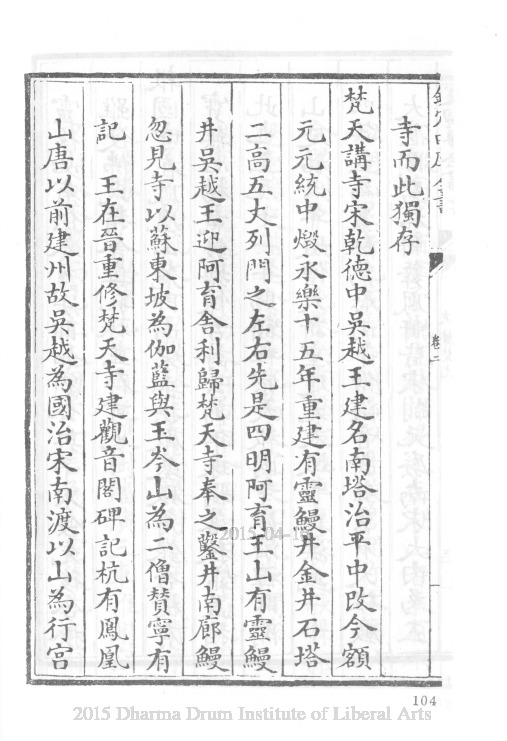 欽定四庫全書
卷二
寺而此獨存
梵天講寺宋乾德中吳越王建名南塔治平中改今額
元元統中燬永樂十五年重建有靈鰻井金井石塔
二高五丈列門之左右先是四明阿育王山有靈鰻
井吳越王迎阿育舍利歸梵天寺奉之鑿井南廊鰻
忽見寺以蘇東坡為伽藍與玉岑山為二僧贊寧有
記　王在晉重修梵天寺建觀音閣碑記杭有鳳凰
山唐以前建州故吳越為國治宋南渡以山為行宮
104
2015-04-16
2015 Dharma Drum Institute of Liberal Arts